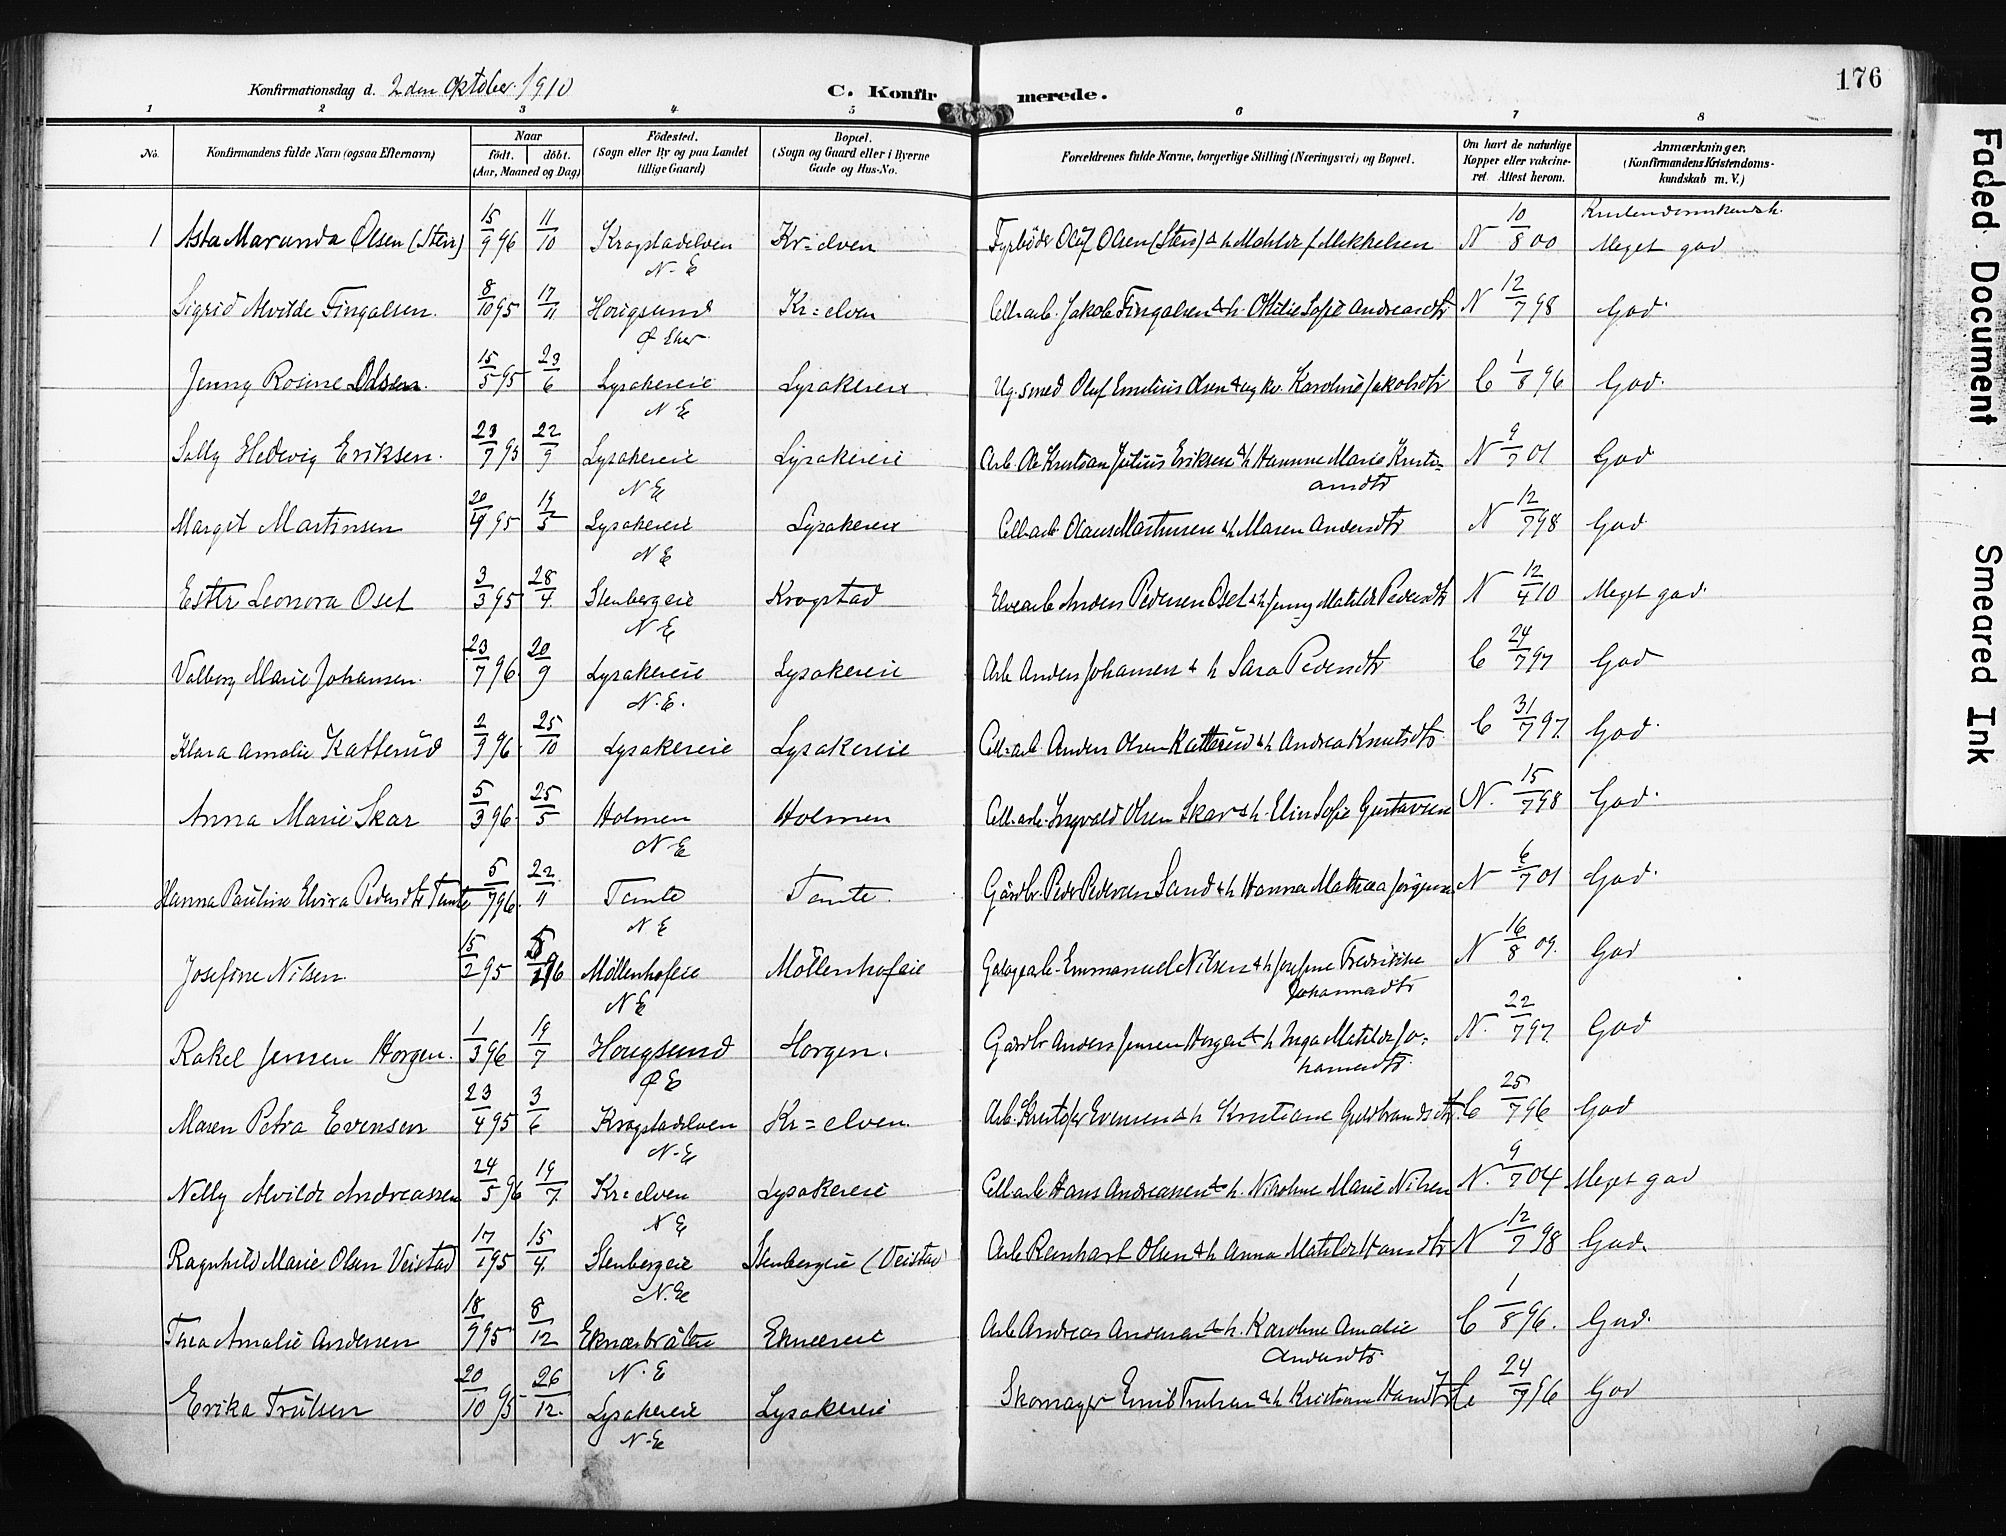 176
Konfirmationsdag d. 2den Oktober 1910
C. Konfirmerede.
1 2 3 4 5 6 7 8
No. Konfirmandens fulde Navn (ogsaa Efternavn) Naar født. døbt. (Aar, Maaned og Dag) Fødested. (Sogn eller By og paa Landet tillige Gaard) Bopæl. (Sogn og Gaard eller i Byerne Gade og Hus-No. Forældrenes fulde Navne, borgerlige Stilling (Næringsvei) og Bopæl. Om havt de naturlige Kopper eller vakcineret. Attest herom. Anmærkninger. (Konfirmandens Kristendomskundskab m. V.)
1 Asta Marunda Olsen (Sten) 15/9 96 11/10 Krogstadelven N-E Kr=elven Fyrbøder Olaf Olsen (Sten) & h Matilde f Mikkelsen N 10/8 00 Meget god
Sigrid Alvilde Fingalsen. 8/10 95 17/11 Hougsund Ø Eker Kr=elven Cell.arb. Jakob Fingalsen & h. Ottilie Sofie Andreasdtr N 12/7 98 God
Jenny Rosine Olsen. 15/5 95 23/6 Lysakereie N E Lysakereie Ug. smed Oluf Emilius Olsen & ug kv. Karoline Jakobsdtr C 1/8 96 God.
Solly Hedevig Eriksen. 23/7 95 22/9 Lysakereie N E Lysakereie Arb. Ole Kristian Julius Eriksen & h Hamine Marie Kristiansdtr N 9/7 01 God
Margit Martinsen 20/4 95 19/5 Lysakereie N E Lysakereie Cell.arb Olaus Martinsen & h Maren Andersdtr N 12/7 98 God
Ester Leonora Oset 3/3 95 28/4. Stenbergeie N E Krogstad Elvearb Anders Pedersen Oset & h Jenny Matilde Pedersdtr N 12/4 10 Meget god.
Valborg Marie Johansen. 23/7 96. 20/9 Lysakereie N.E. Lysakereie Arb Anders Johansen & h Sara Pedersdtr C 24/7 97 God
Klara Amalie Katterud 2/9 96. 25/10 Lysakereie Lysakereie Cell=arb. Anders Olsen Katterud & h Andrea Knutsdtr. C 31/7 97. God.
Anna Marie Skar 5/3 96. 25/5 Holmen N-E Holmen Cell.arb. Ingvald Olsen Skar & h. Elin Sofie Gustavsen N. 15/7 98 God.
Hanna Pauline Elvira Pedersdtr Tomte 5/7 96. 22/11 Tomte N E Tomte. Gårdbr. Peder Pedersen Sand & h Hanna Mathea Jørgensen N 6/7 01 God.
Josefine Nilsen 15/2 95 96 Møllenhofeie N E Møllenhofeie Emmanuel Nilsen & h Josefine Fredrikke Johannesdtr N 16/8 09. God
Rakel Jensen Horgen. 1/3 96 19/7 Hougsund Ø E Horgen. Gårdbr Anders Jensen Horgen & h Inga Matilde Johannesdtr. N. 22/7 97 God
Maren Petra Evensen 23/4 95 3/6 Krogstadelven N-E Kr=elven. Arb. Kristofer Evensen & h Kristiane Guldbrandsdtr. C 25/7 96 God
Nelly Alvilde Andreassen 24/5 96 19/7 Kr=elven N E Lysakereie Cell.arb Hans Andreassen & h. Nikoline Marie Nilsen N. 9/7 04 Meget god
Ragnhild Marie Olsen Veistad 17/1 95 15/4. Stenbergeie N.E Stenbergeie (Veistad Arb Reinhart Olsen & h Anna Matilde Hansdtr N 12/7 98 God.
Thea Amalie Andersen 18/9 95 8/12 Eknesbråten N. E Ekneseie Arb Andreas Andersen & h. Karoline Amalie Andersdtr. C 1/8 96. God.
Erika Trulsen 20/10 95 26/12. Lysakereie N-E Lysakereie Skomager Emil Trulsen & h Kristiane Hansdtr C 24/7 96 God
Faded Document
Smeared Ink